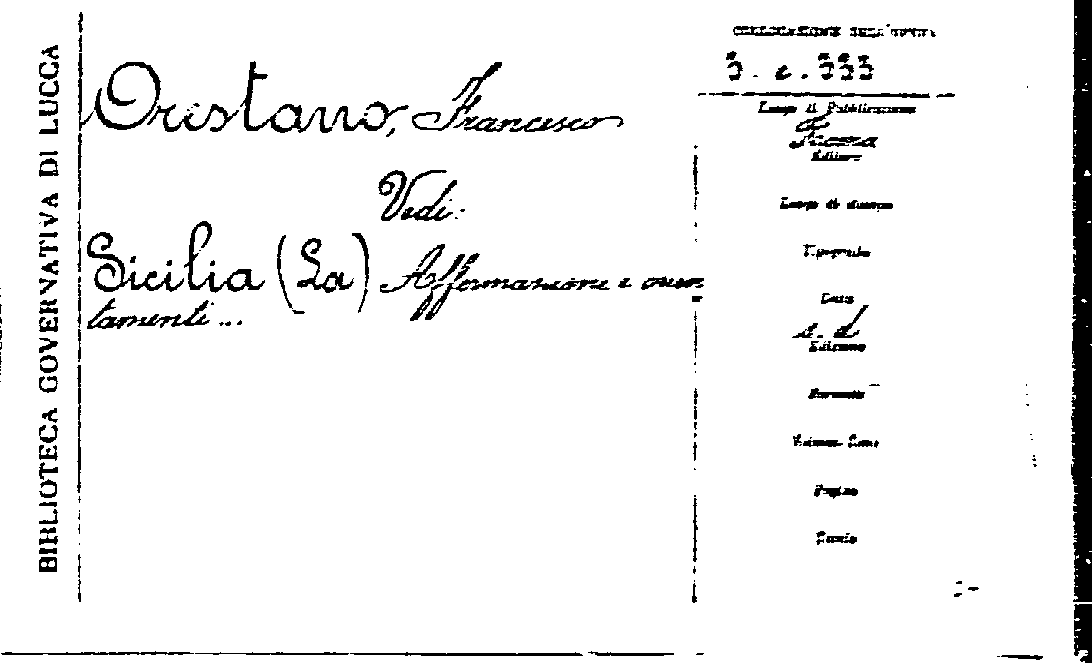 BIBLIOTECA GOVERNATIVA DI LUCCA
Orestano, Francesco
Vedi:
Sicilia (La) Affermazione e orien=
tamenti...
COLLOCAZIONE DELL'OPERA
Luogo di Pubblicazione
Editore
Luogo di stampa
Tipografia
Data
s. d
Edizione
Formato
Pagine